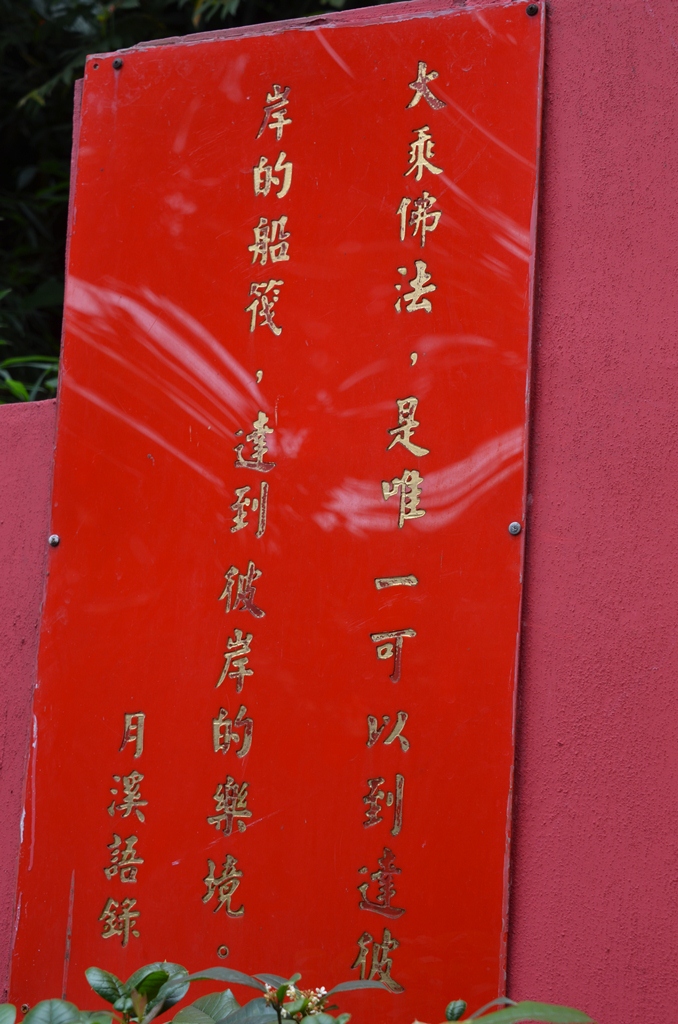 大乘佛法，是唯一可以到達彼
岸的船筏，達到彼岸的樂境。
月溪語錄